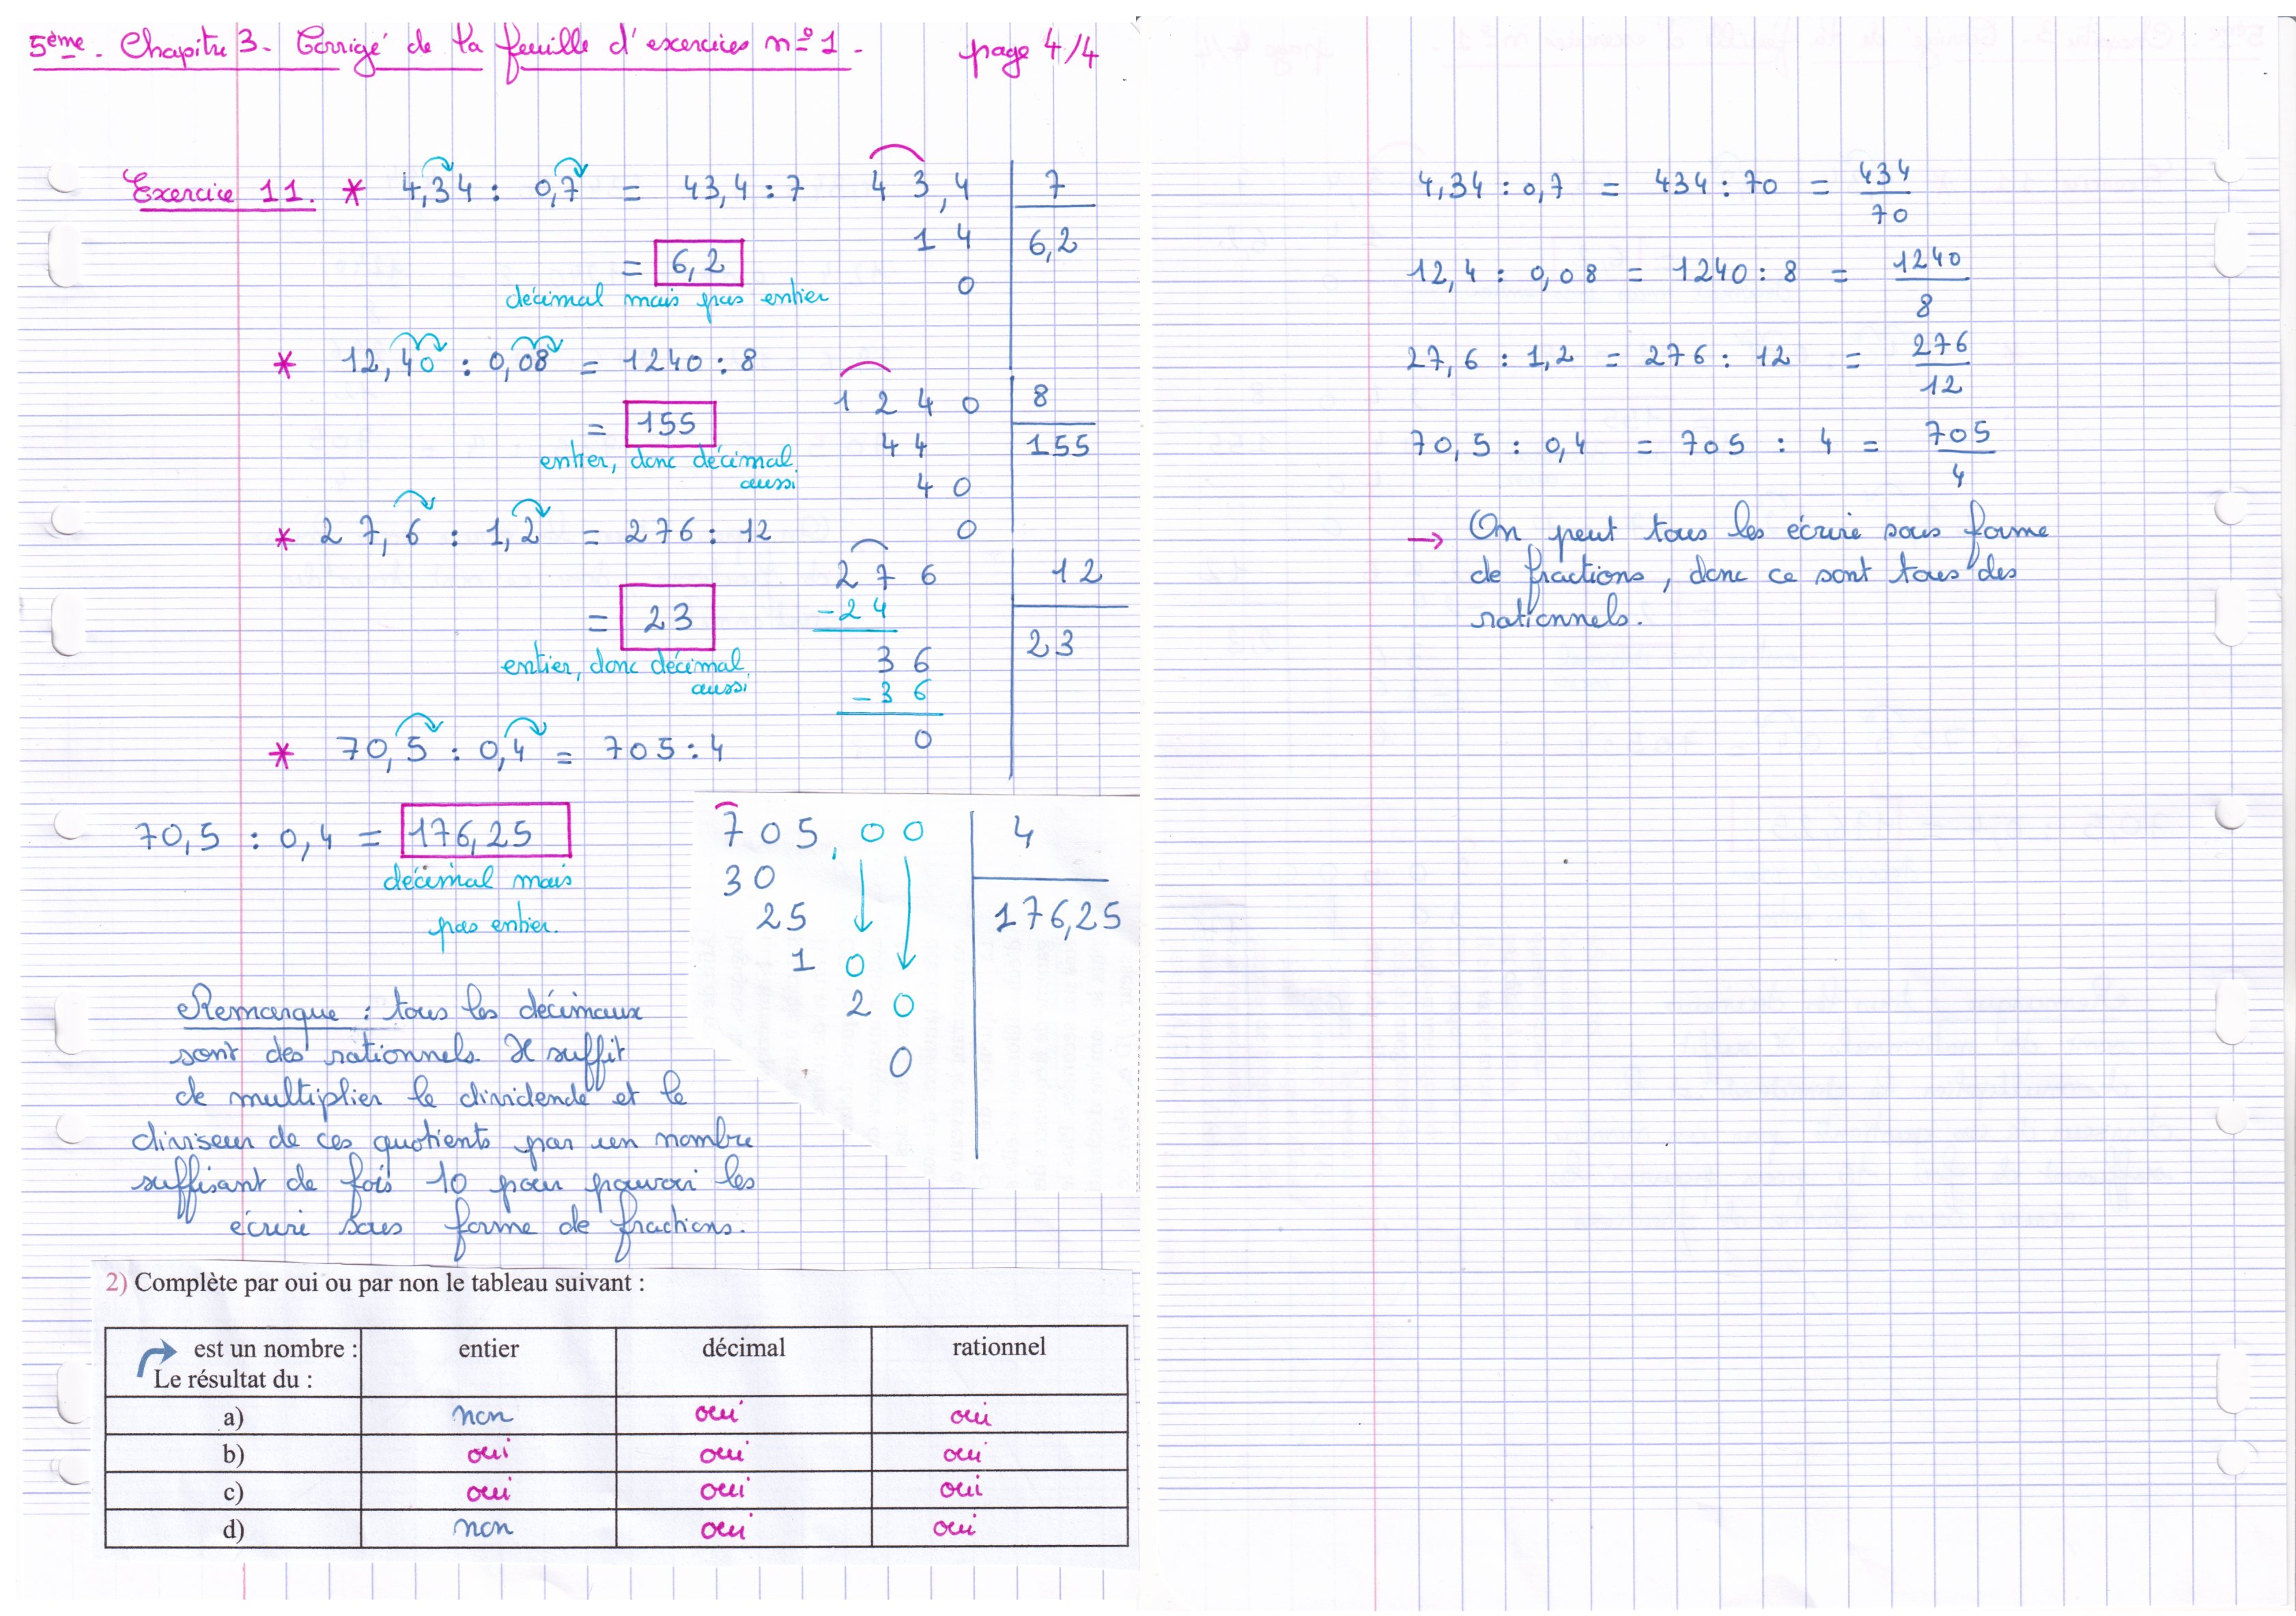 5ème. Chapitre 3. Corrigé de la feuille d'exercices n° 1. page 4/4
Exercice 11. * 4,34 : 0,7 = 43,4 : 7
= 6,2
décimal mais pas entier
43,4 7
14 6,2
0
* 12,40 : 0,08 = 1240 : 8
= 155
entier, donc décimal
aussi
1240 8
44 155
40
0
* 27,6 : 1,2 = 276 : 12
= 23
entier, donc décimal
aussi
276 12
-24
36 23
-36
0
* 70,5 : 0,4 = 705 : 4
70,5 : 0,4 = 176,25
décimal mais
pas entier.
705,00 4
30
25 176,25
10
20
0
Remarque : tous les décimaux
sont des rationnels. Il suffit
de multiplier le dividende et le
diviseur de ces quotients par un nombre
suffisant de fois 10 pour pouvoir les
écrire sous forme de fractions.
2) Complète par oui ou par non le tableau suivant :
est un nombre : entier décimal rationnel
Le résultat du :
a) non oui oui
b) oui oui oui
c) oui oui oui
d) non oui oui
4,34 : 0,7 = 434 : 70 = 434/70
12,4 : 0,08 = 1240 : 8 = 1240/8
27,6 : 1,2 = 276 : 12 = 276/12
70,5 : 0,4 = 705 : 4 = 705/4
→ On peut tous les écrire sous forme
de fractions, donc ce sont tous des
rationnels.